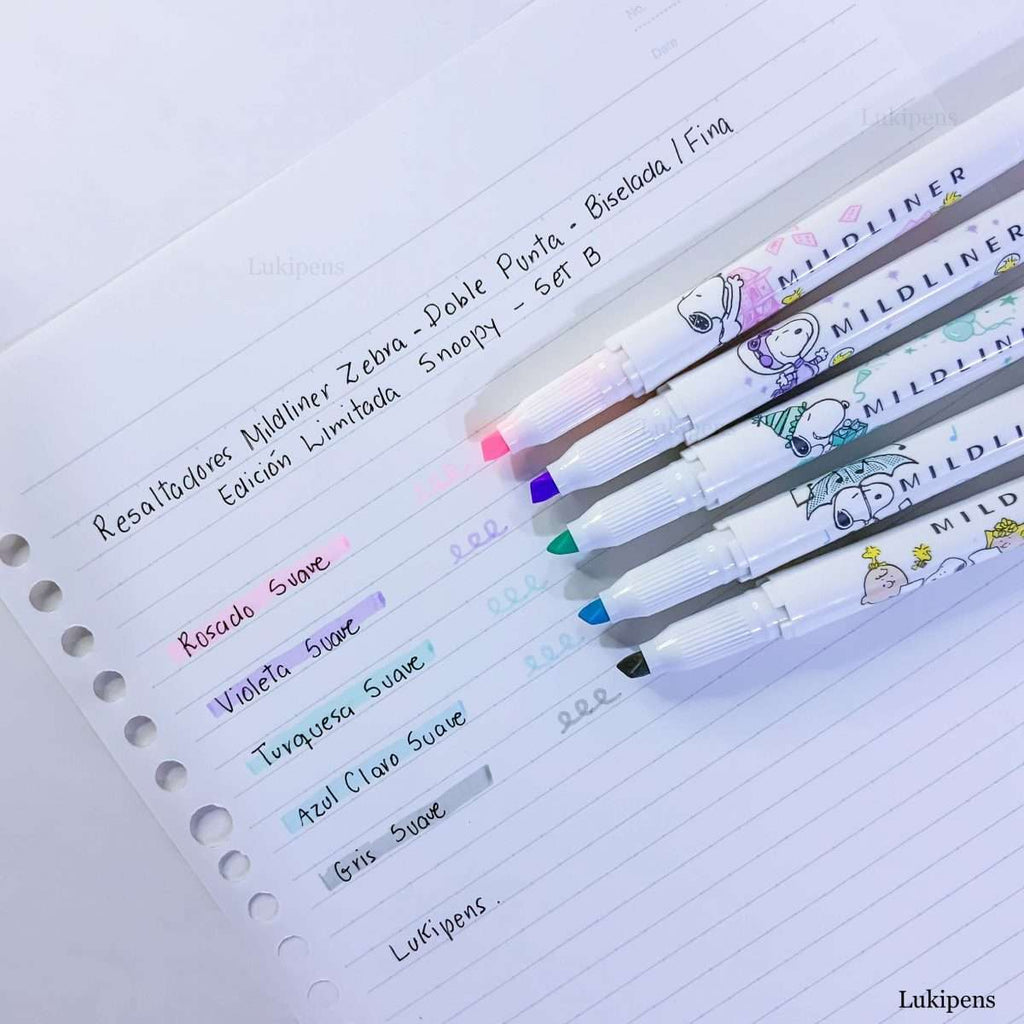 No.
Date
Lukipens
Lukipens
Resaltadores Mildliner Zebra - Doble Punta - Biselada / Fina
Edición Limitada Snoopy - Set B
MILDLINER
MILDLINER
MILDLINE
MILDLI
MILD
Lukipens
Rosado Suave
Violeta Suave
Turquesa Suave
Azul Claro Suave
Gris Suave
Lukipens.
Lukipens